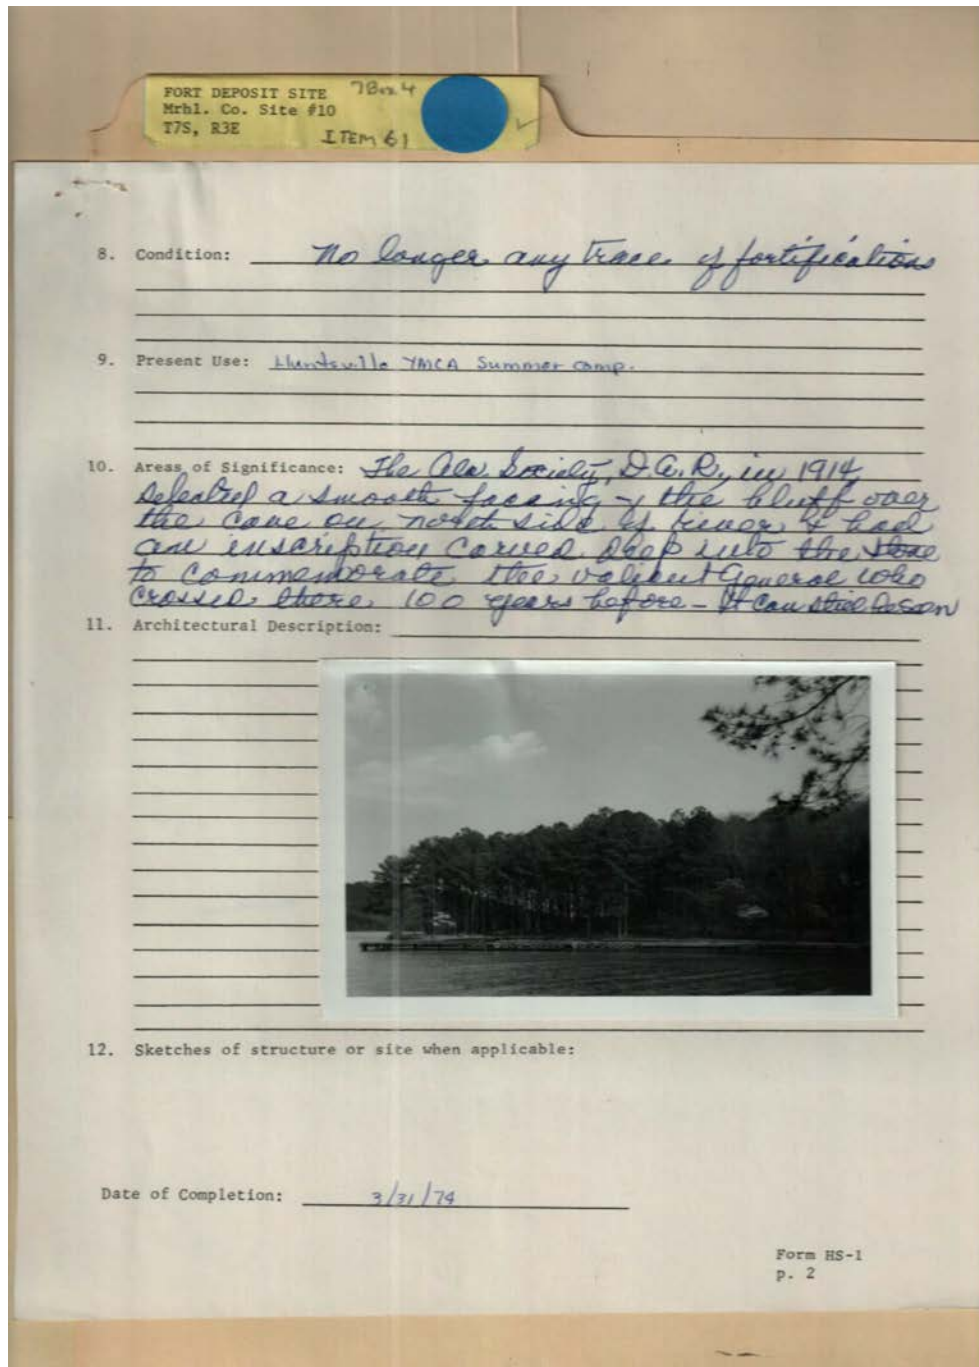 FORT DEPOSIT SITE 7Box 4
Mrhl. Co. Site #10
T7S, R3E
ITEM 61
8. Condition: No longer any trace of fortifications
9. Present Use: Huntsville YMCA Summer camp.
10. Areas of Significance: The Ala. Society, D.A.R., in 1914
selected a smooth facing of the bluff over
the cave on north side of river & had
an inscription carved deep into the stone
to commemorate the valient General who
crossed there 100 years before - It can still be seen
11. Architectural Description:
12. Sketches of structure or site when applicable:
Date of Completion: 3/31/74
Form HS-1
p. 2